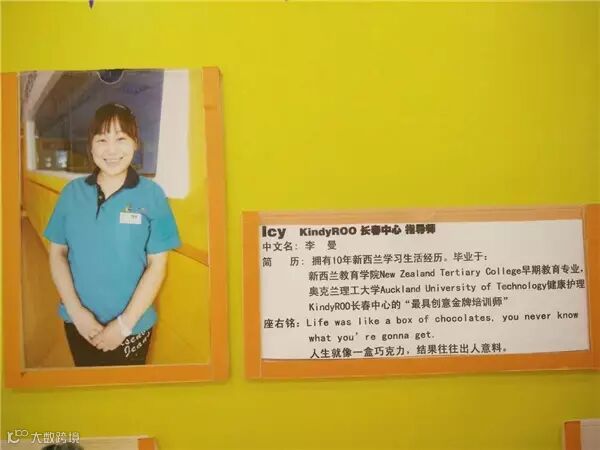 Icy KindyROO 长春中心 指导师
中文名: 李 曼
简 历: 拥有10年新西兰学习生活经历。毕业于:
新西兰教育学院New Zealand Tertiary College早期教育专业,
奥克兰理工大学Auckland University of Technology健康护理
KindyROO长春中心的“最具创意金牌培训师”
座右铭: Life was like a box of chocolates, you never know
what you're gonna get.
人生就像一盒巧克力，结果往往出人意料。
大数跨境